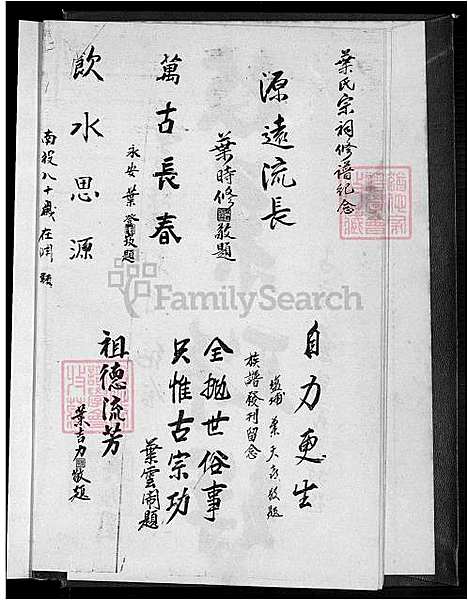 葉氏宗祠修譜紀念
源遠流長
葉時修敬題
萬古長春
永安葉登玟題
飲水思源
南投八十歲在渊題
自力更生
葉天 敬題
族譜發刊留念
全抛世俗事
只惟古宗功
葉雲 題
祖德流芳
葉吉力敬題
FamilySearch